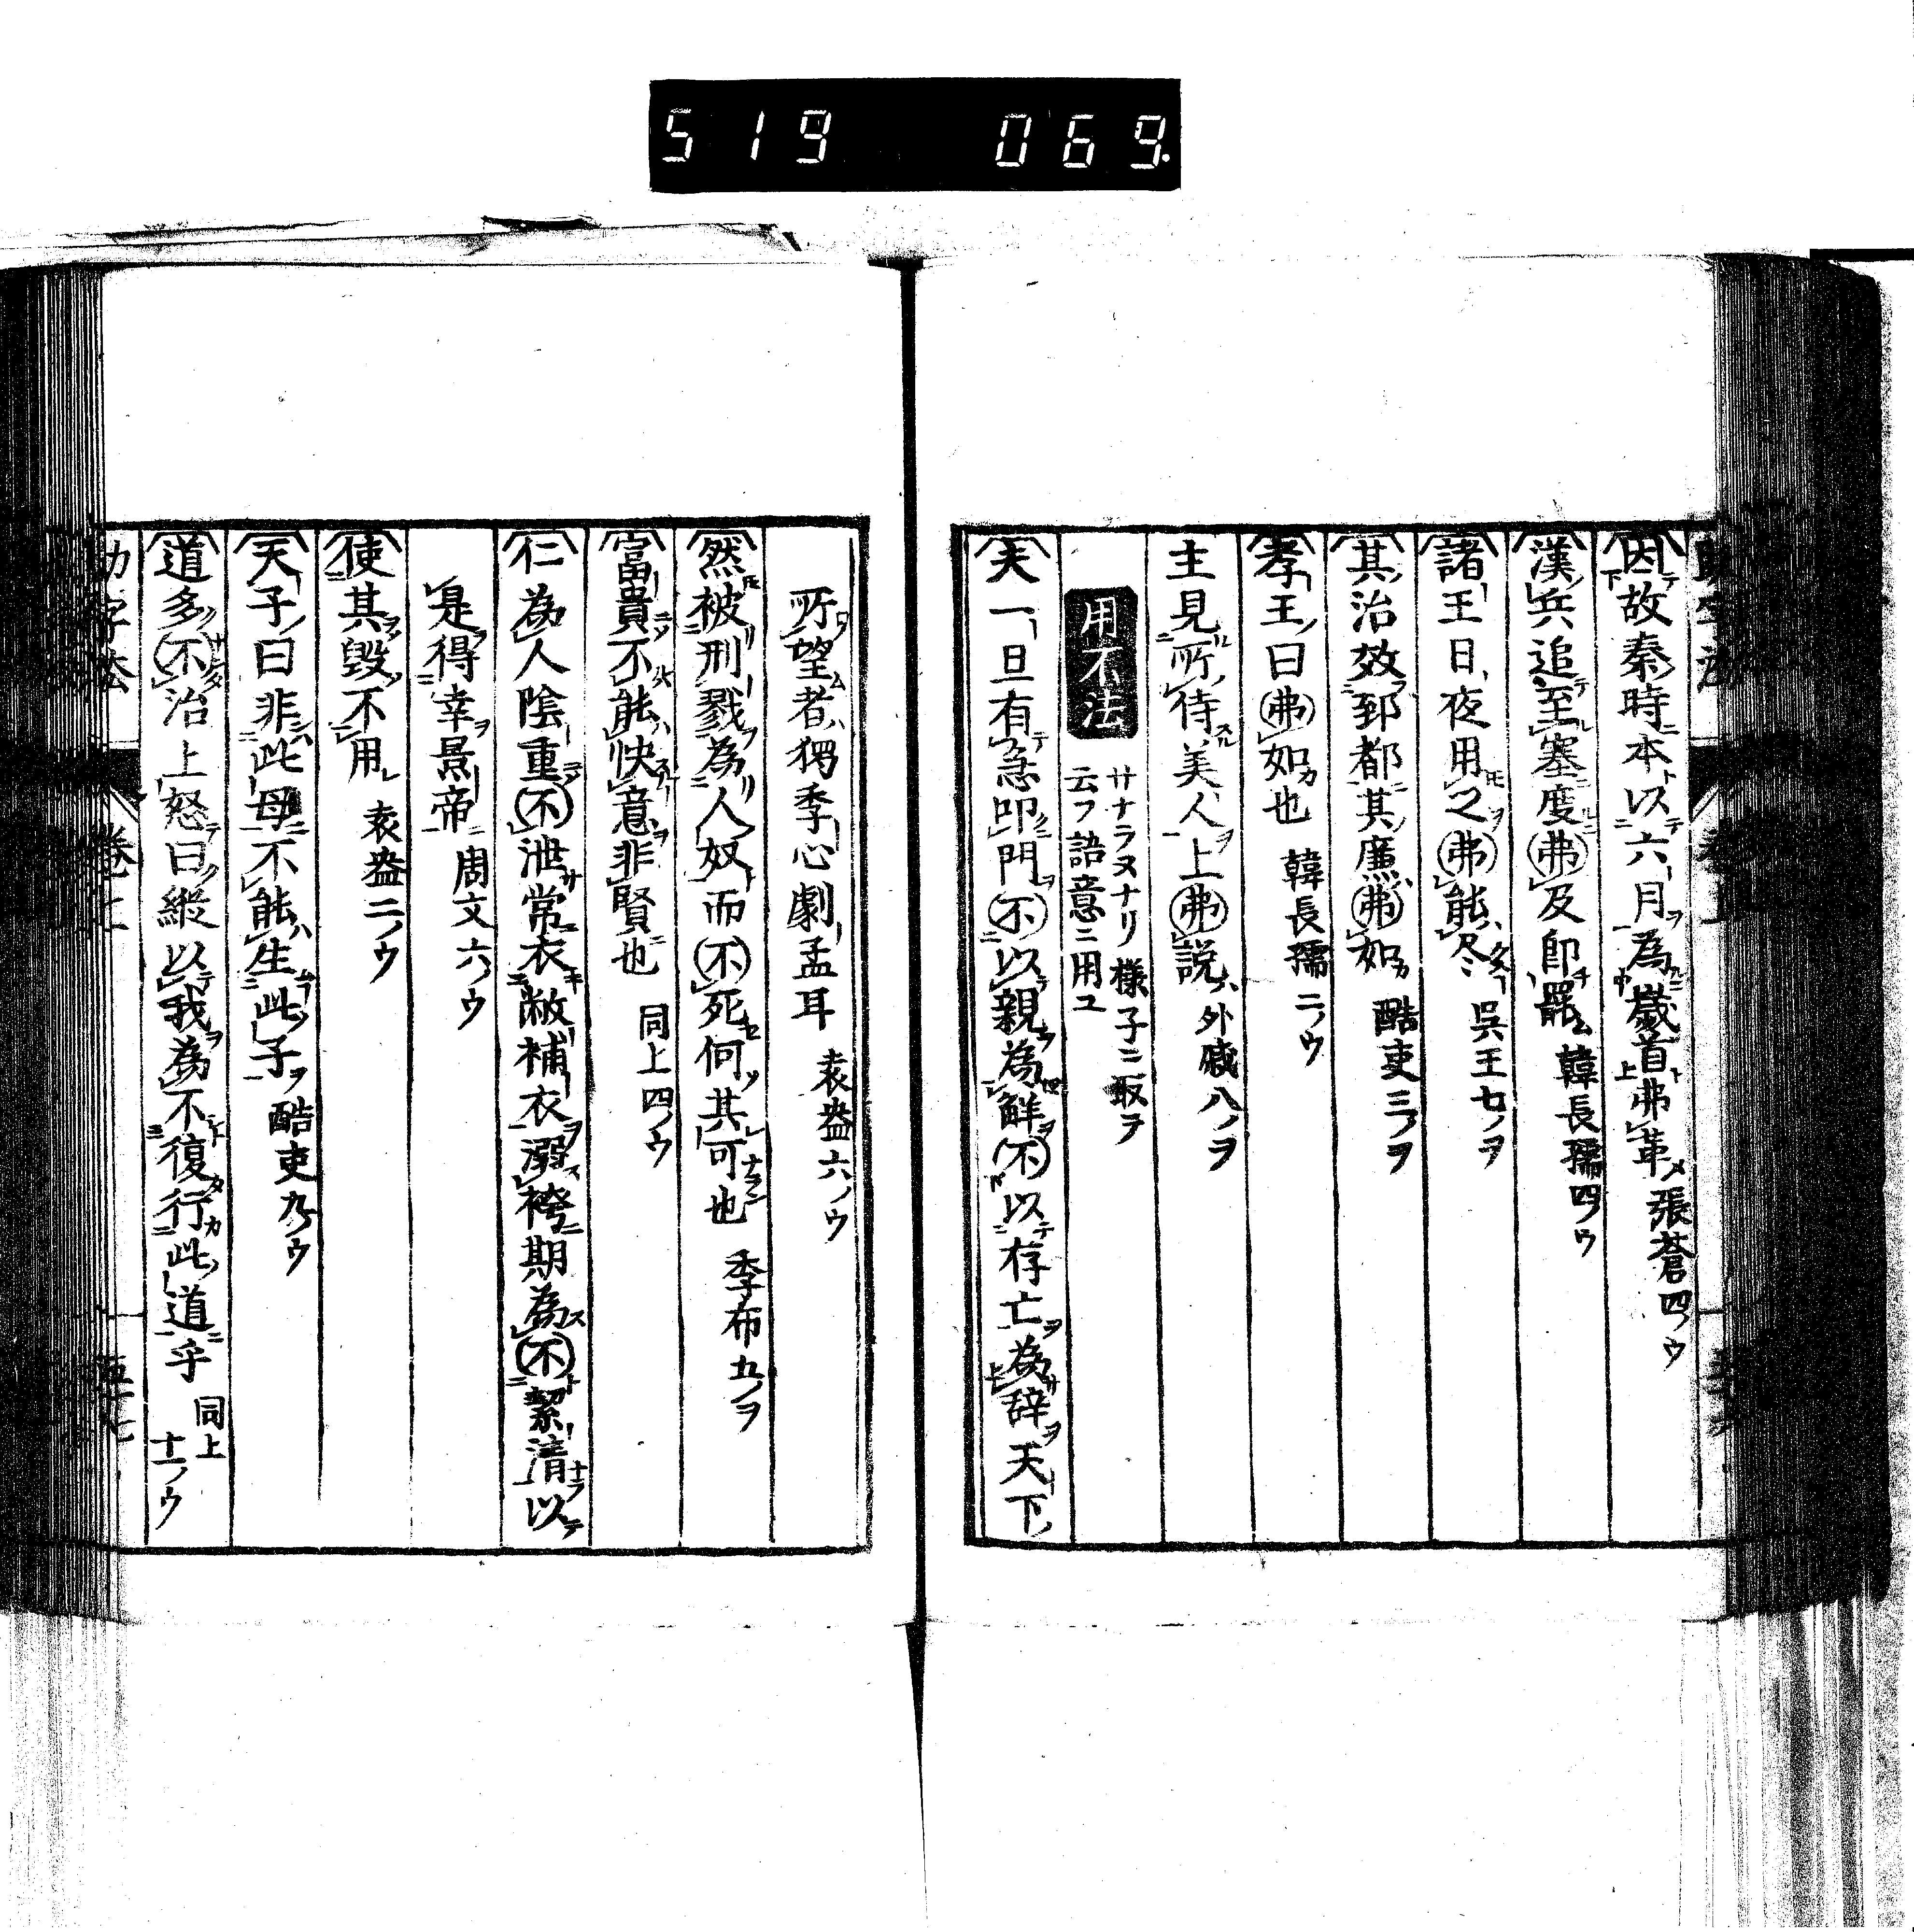 519 069.
因故秦時本以六月為歳首弗革 張蒼四ノウ
漢兵追至塞度弗及即罷 韓長孺四ノウ
諸王日夜用之弗能冬 呉王七ノヲ
其治效郅都其廉弗如 酷吏三ノヲ
孝王曰弗如也 韓長孺二ノウ
主見所侍美人上弗説 外戚八ノヲ
用不法 サナラヌナリ様子ニ取ヲ
云フ語意ニ用ユ
夫一旦有急叩門不以親為解不以存亡為辞天下
所望者獨季心劇孟耳 袁盎六ノウ
然被刑戮為人奴而不死何其可也 季布五ノヲ
富貴不能快意非賢也 同上四ノウ
仁為人陰重不泄常衣敝補衣溺袴期為不絜清以
是得幸景帝 周文六ノウ
使其毀不用 袁盎二ノウ
天子曰非此母不能生此子 酷吏九ノウ
道多不治上怒曰縦以我為不復行此道乎 同上
十一ノウ